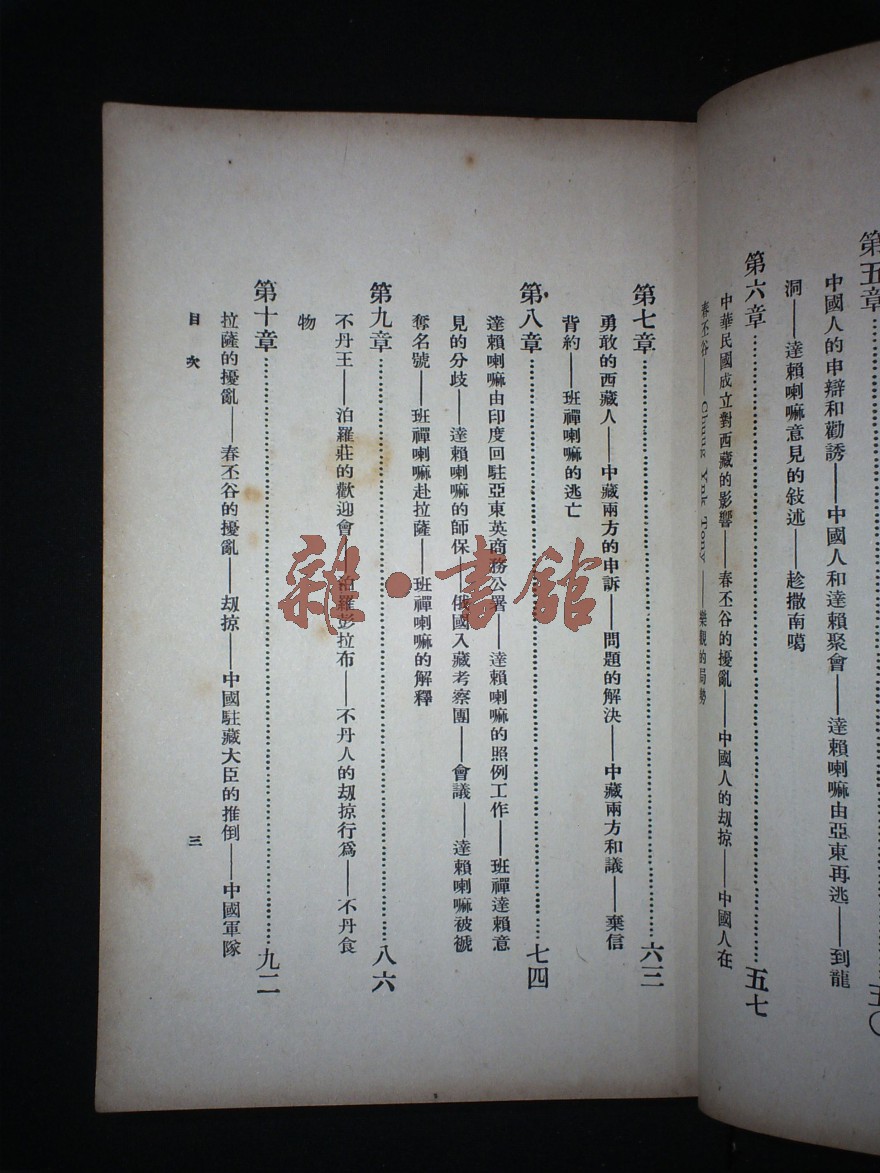 第五章……五〇
中國人的申辯和勸誘——中國人和達賴聚會——達賴喇嘛由亞東再逃——到龍
洞——達賴喇嘛意見的敍述——趁撒南噶
第六章……五七
中華民國成立對西藏的影響——春丕谷的擾亂——中國人的刼掠——中國人在
春丕谷——Chung Yok Tony——樂觀的局勢
第七章……六三
勇敢的西藏人——中藏兩方的申訴——問題的解決——中藏兩方和議——棄信
背約——班禪喇嘛的逃亡
第八章……七四
達賴喇嘛由印度回駐亞東英商務公署——達賴喇嘛的照例工作——班禪達賴意
見的分歧——達賴喇嘛的師保——俄國入藏考察團——會議——達賴喇嘛被褫
奪名號——班禪喇嘛赴拉薩——班禪喇嘛的解釋
第九章……八六
不丹王——泊羅莊的歡迎會——泊羅彭拉布——不丹人的刼掠行爲——不丹食
物
第十章……九二
拉薩的擾亂——春丕谷的擾亂——刼掠——中國駐藏大臣的推倒——中國軍隊
目次
三
雜·書館